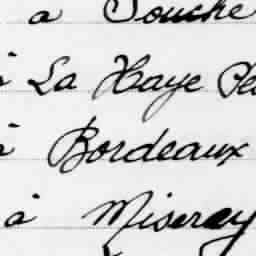 à Touche
à La Haye
à Bordeaux
à Miseray